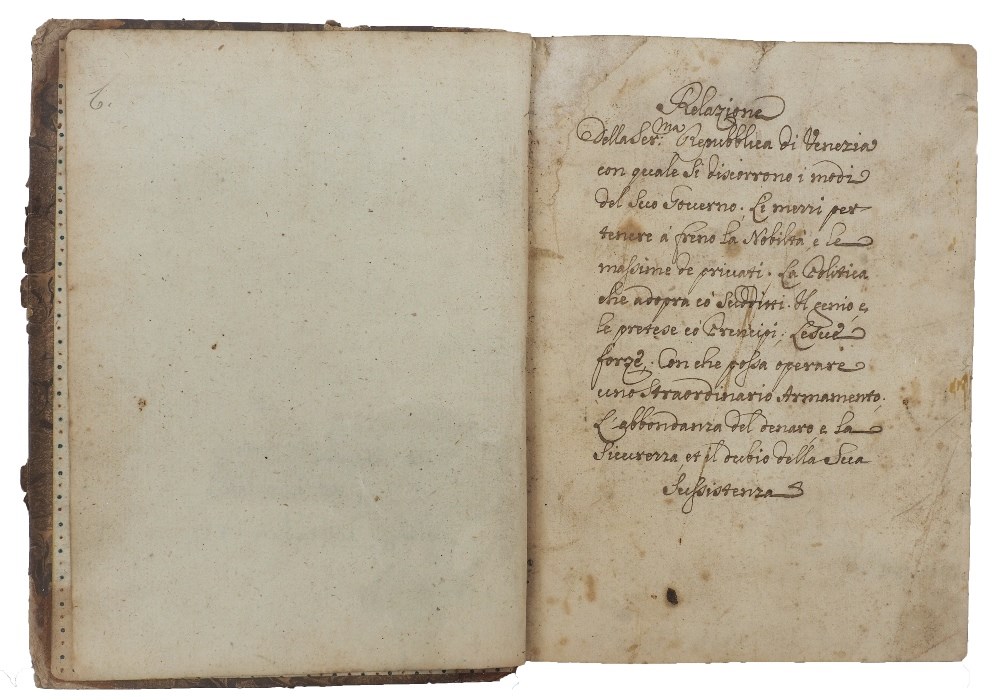 6.
Relazione
Della Ser.ma Republica di Venezia
con quale si discorrono i modi
del suo Governo. Li mezzi per
tenere à freno la Nobiltà e le
massime de privati. La Politica
che adopra co' sudditi. Il genio, e
le pretese co' Prencipi. Le sue
forze. Con che possa operare
uno straordinario Armamento.
L'abbondanza del denaro e la
sicurezza, et il dubio della sua
sussistenza